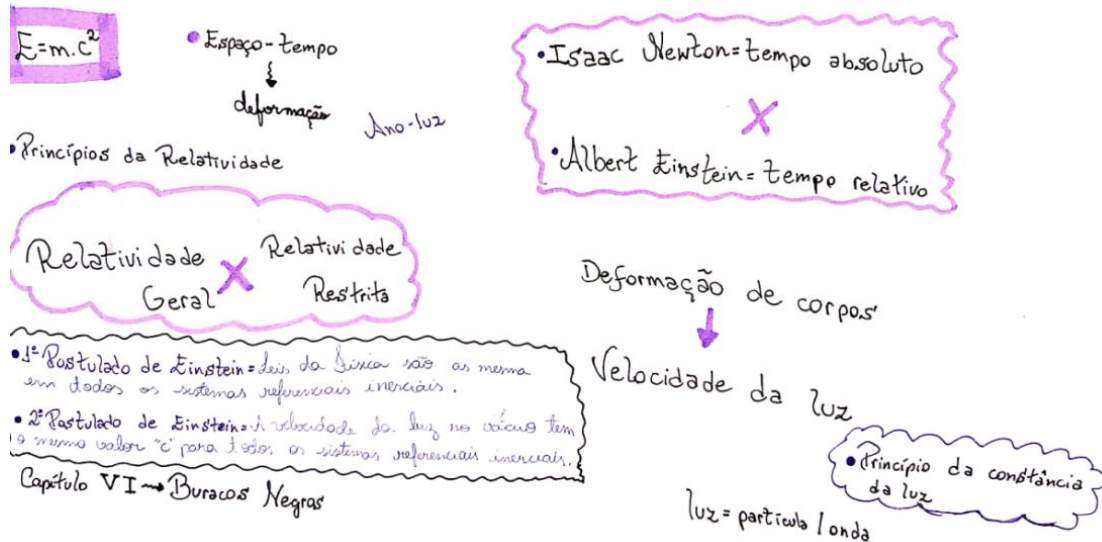 E=m.c²
• Espaço-tempo
deformação
Ano-luz
• Princípios da Relatividade
Relatividade
Geral
X
Relatividade
Restrita
• 1º Postulado de Einstein = Leis da Física são as mesma
em todos os sistemas referenciais inerciais.
• 2º Postulado de Einstein = A velocidade da luz no vácuo tem
o mesmo valor "c" para todos os sistemas referenciais inerciais.
Capítulo VI → Buracos Negros
• Isaac Newton = tempo absoluto
X
• Albert Einstein = tempo relativo
Deformação de corpos
Velocidade da luz
• Princípio da constância
da luz
luz = partícula / onda